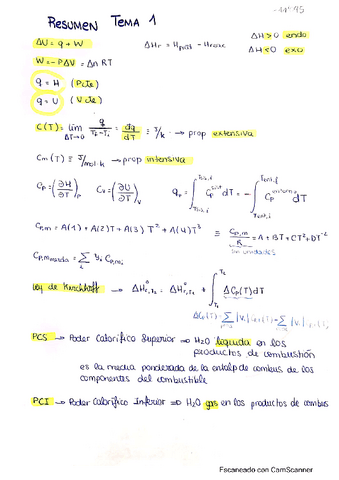 RESUMEN TEMA 1
ΔU = q + W   ΔHr = Hprod - Hreac   ΔH > 0 endo
W = -PΔV = Δn RT   ΔH < 0 exo
q = H (P cte)
q = U (V cte)
C(T) = lim ΔT→0 q/(Tf-Ti) = dq/dT ≡ J/K → prop extensiva
Cm(T) ≡ J/mol·K → prop intensiva
Cp = (∂H/∂T)p   Cv = (∂U/∂T)v   qp = ∫ Cp dT = - ∫ Cp dT
Cp,m = A(1) + A(2)T + A(3) T² + A(4)T³ ≡ Cp,m/R = A + BT + CT² + DT⁻²
sin unidades
Cp,m = Σi yi Cp,mi
Ley de Kirchhoff → ΔH°r,T2 = ΔH°r,T1 + ∫ ΔCp(T)dT
PCS → Poder Calorífico Superior → H2O líquida en los
productos de combustión
es la media ponderada de la entalp de combus de los
componentes del combustible
PCI → Poder Calorífico Inferior → H2O gas en los productos de combus
Escaneado con CamScanner